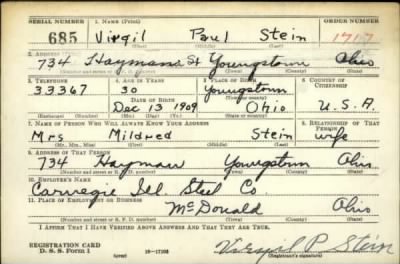 SERIAL NUMBER 1. NAME (Print) ORDER NUMBER
685 Virgil Paul Stein 1717
(First) (Middle) (Last)
2. ADDRESS (Print)
734 Haymans St Youngstown Ohio
(Number and street or R. F. D. number) (Town) (County) (State)
3. TELEPHONE 4. AGE IN YEARS 5. PLACE OF BIRTH 6. COUNTRY OF CITIZENSHIP
33367 30 Youngstown
DATE OF BIRTH (Town or county)
Dec 13 1909 Ohio U.S.A.
(Exchange) (No.) (Mo.) (Day) (Yr.) (State or country)
7. NAME OF PERSON WHO WILL ALWAYS KNOW YOUR ADDRESS 8. RELATIONSHIP OF THAT PERSON
Mrs Mildred Stein wife
(Mr., Mrs., Miss) (First) (Middle) (Last)
9. ADDRESS OF THAT PERSON
734 Hayman Youngstown Ohio
(Number and street or R. F. D. number) (Town) (County) (State)
10. EMPLOYER'S NAME
Carnegie Ill Steel Co.
11. PLACE OF EMPLOYMENT OR BUSINESS
McDonald Ohio
(Number and street or R. F. D. number) (Town) (County) (State)
I AFFIRM THAT I HAVE VERIFIED ABOVE ANSWERS AND THAT THEY ARE TRUE.
REGISTRATION CARD
D. S. S. Form 1 (over) Virgil P. Stein
(Registrant's signature)